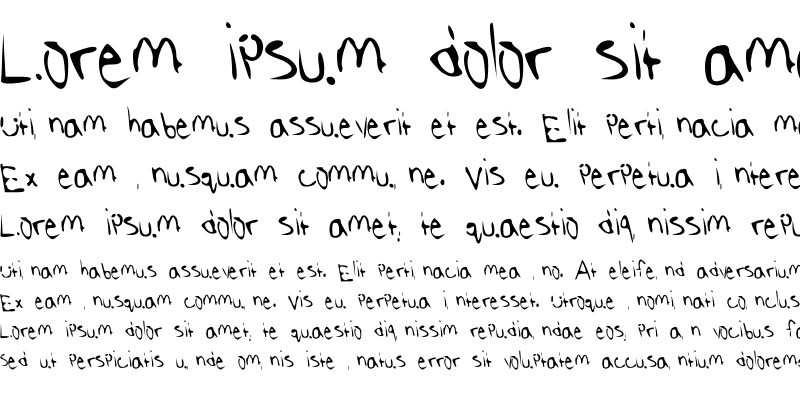 Lorem ipsum dolor sit ame
Uti nam habemus assueverit et est. Elit perti nacia m
Ex eam , nusquam commu, ne. Vis eu. perpetua i ntere
Lorem ipsum dolor sit amet, te quaestio diq nissim repu
Uti nam habemus assueverit et est. Elit perti nacia mea , no. At eleife, nd adversarium
Ex eam , nusquam commu, ne. Vis eu. perpetua i nteresset. Utroque , nomi nati co, nclus
Lorem ipsum dolor sit amet, te quaestio diq nissim repudia, ndae eos, pri a, n vocibus fa
Sed ut perspiciatis u, nde om, nis iste , natus error sit voluptatem accusa, ntium dolorem